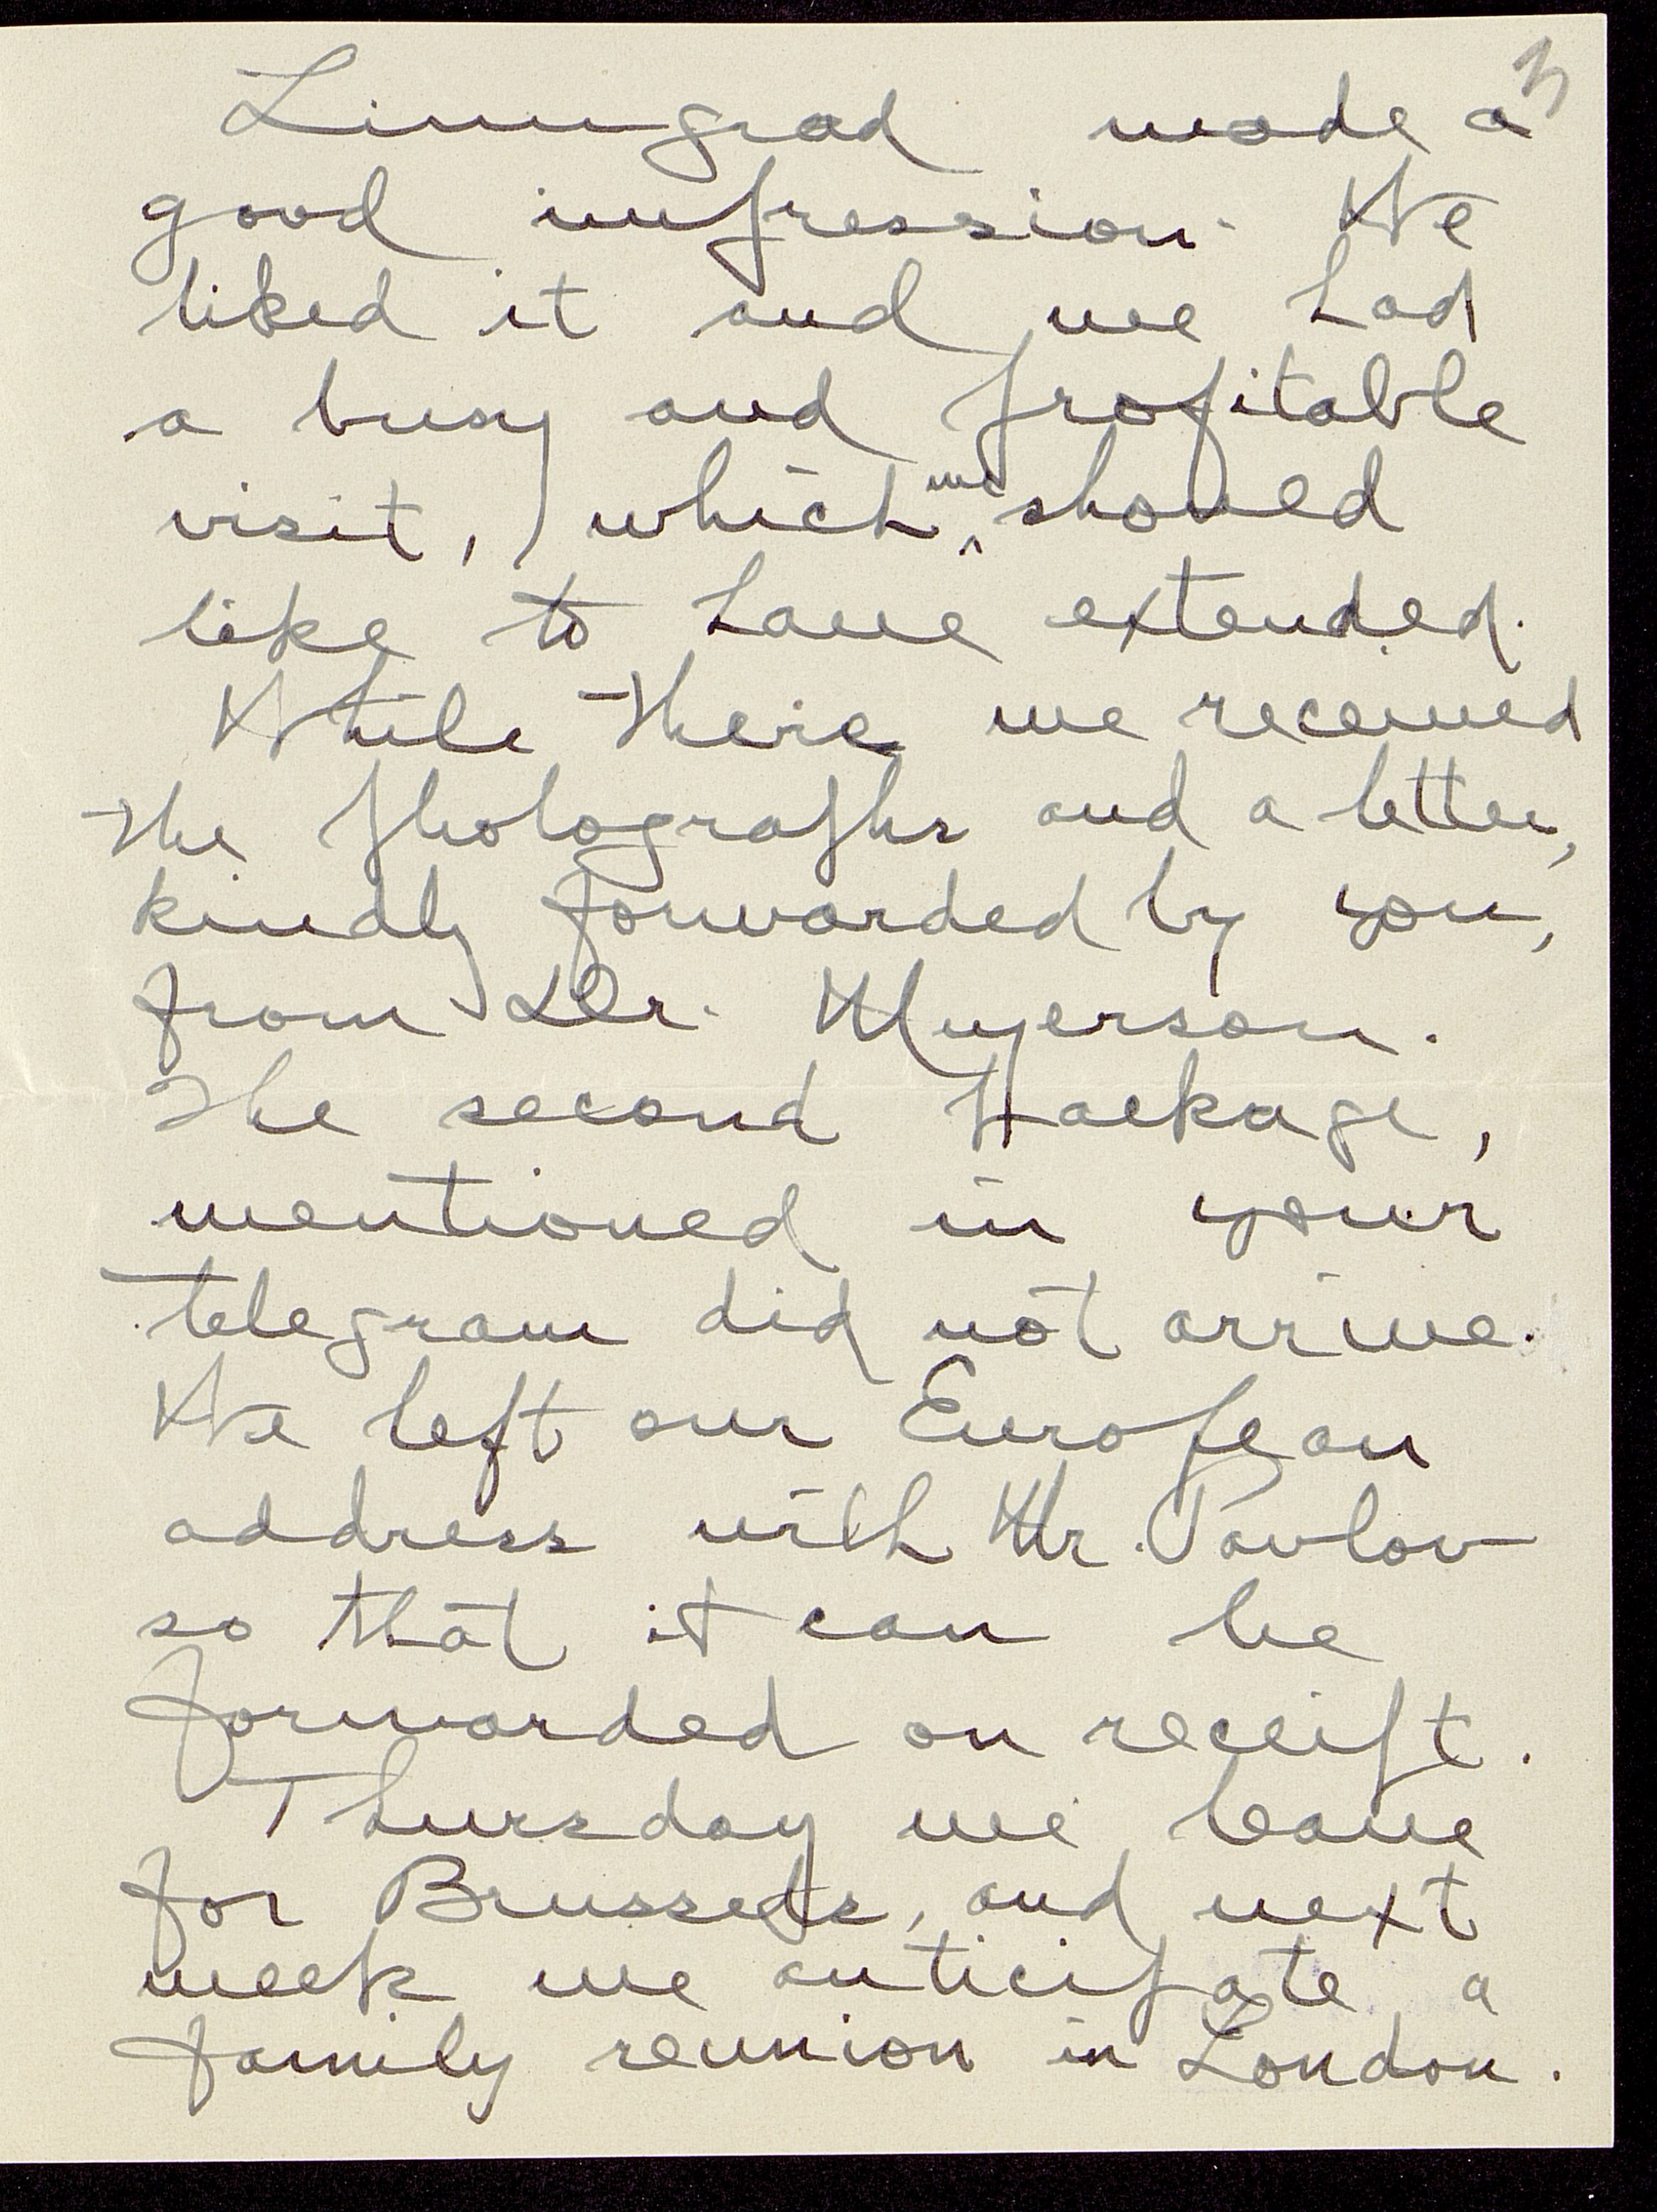 3
Linengrad made a
good impression. We
liked it and we had
a busy and profitable
visit, which ^we should
like to have extended.
While there we received
the photographs and a letter,
kindly forwarded by you,
from Dr. Myerson.
The second package,
mentioned in your
telegram did not arrive.
We left our European
address with Mr. Pavlov
so that it can be
forwarded on receipt.
Thursday we leave
for Brussels, and next
week we anticipate a
family reunion in London.